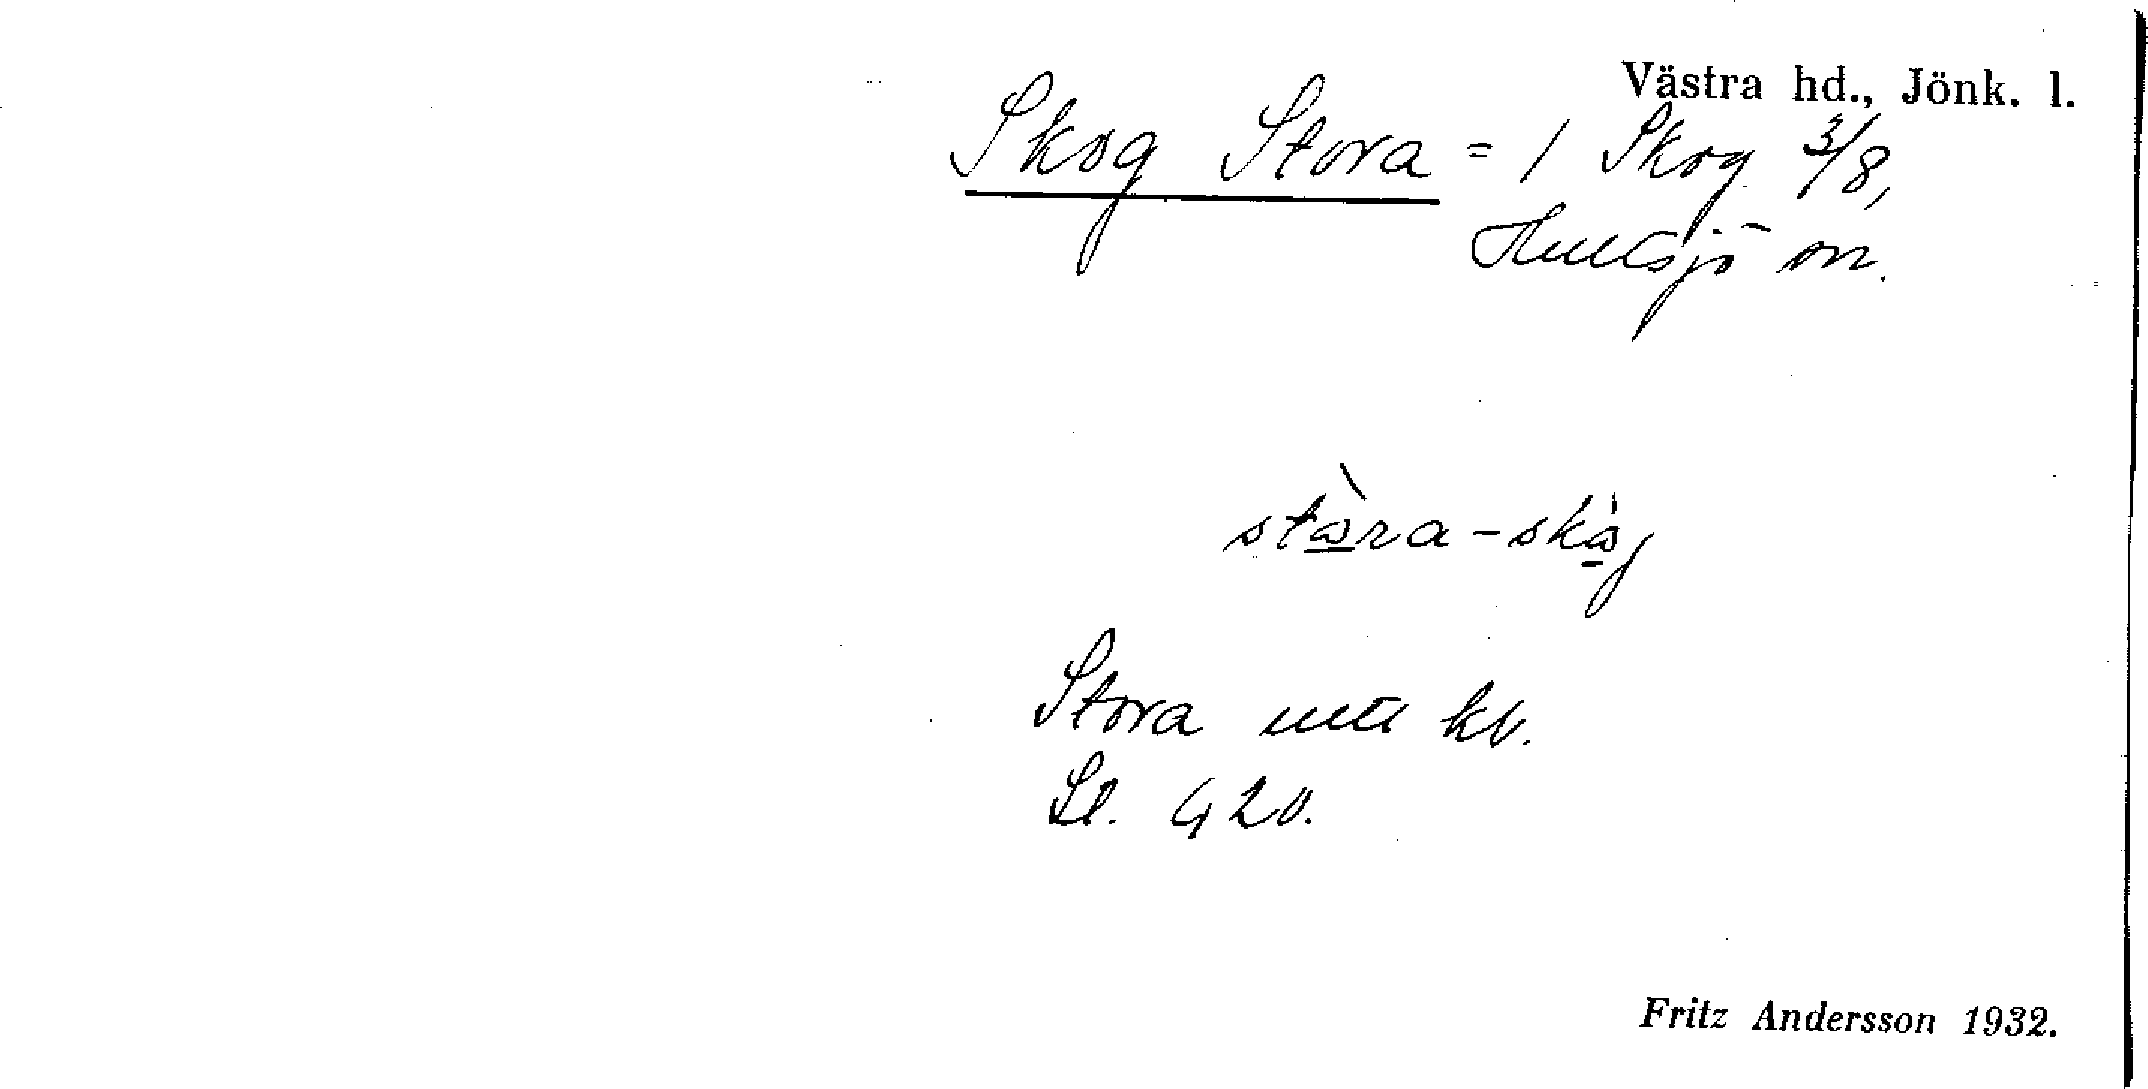 Västra hd., Jönk. l.
Skog Stora = 1 Skog 3/8,
Hultsjö sn.
stàra-skàg
Stora kb.
Ll. G 20.
Fritz Andersson 1932.